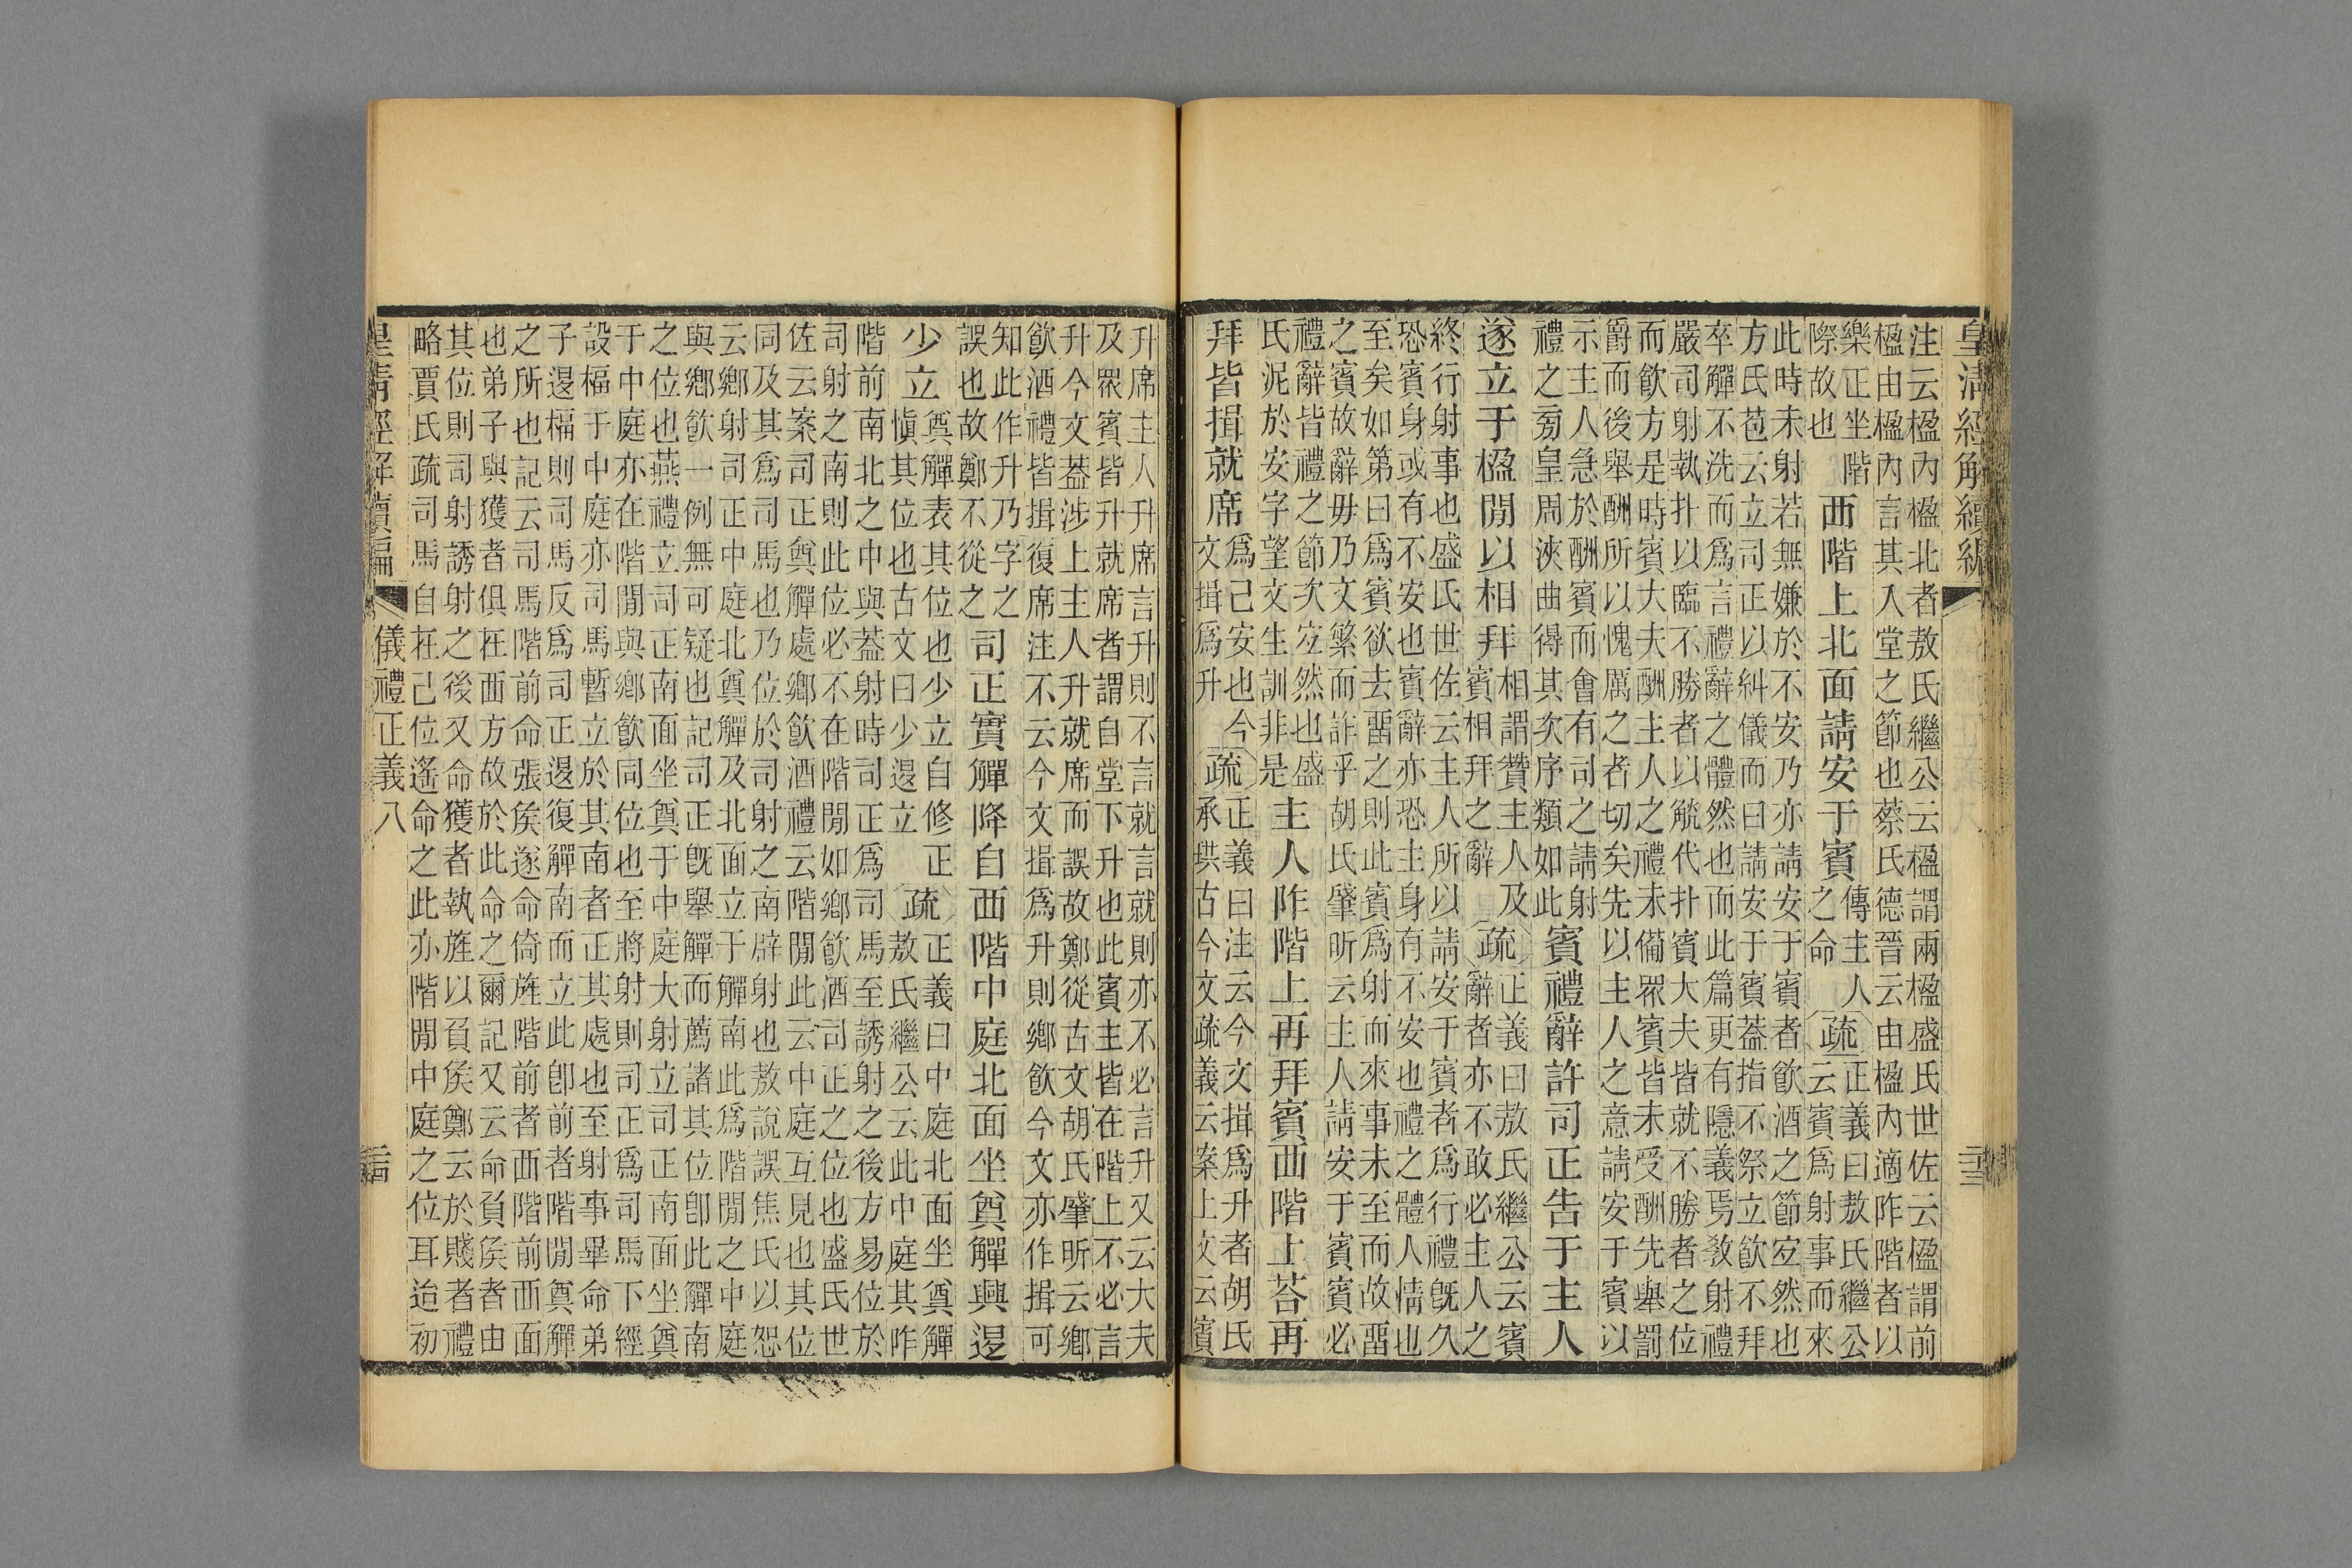 皇清經解續編
二十三
注云楹內楹北者敖氏繼公云楹謂兩楹盛氏世佐云楹謂前
楹由楹內言其入堂之節也蔡氏德晉云由楹內適阼階者以
樂正坐階
際故也
西階上北面請安于賓
傳主人
之命
疏
正義曰敖氏繼公
云賓爲射事而來
此時未射若無嫌於不安乃亦請安于賓者飲酒之節宜然也
方氏苞云立司正以糾儀而曰請安于賓蓋指不祭立飲不拜
卒觶不洗而爲言禮辭之體然也而此篇更有隱義焉敎射禮
嚴司射執扑以臨不勝者以觥代扑賓大夫皆就不勝者之位
而飲方是時賓大夫酬主人之禮未備眾賓皆未受酬先舉罰
爵而後舉酬所以愧厲之者切矣先以主人之意請安于賓以
示主人急於酬賓而會有司之請射
禮之旁皇周浹曲得其次序類如此
賓禮辭許司正告于主人
遂立于楹閒以相拜
相謂贊主人及
賓相拜之辭
疏
正義曰敖氏繼公云賓
辭者亦不敢必主人之
終行射事也盛氏世佐云主人所以請安于賓者爲行禮旣久
恐賓身或有不安也賓辭亦恐主身有不安也禮之體人情也
至矣如第曰爲賓欲去畱之則此賓爲射而來事未至而故畱
之賓故辭毋乃文繁而詐乎胡氏肇昕云主人請安于賓賓必
禮辭皆禮之節次宜然也盛
氏泥於安字望文生訓非是
主人阼階上再拜賓西階上荅再
拜皆揖就席
爲己安也今
文揖爲升
疏
正義曰注云今文揖爲升者胡氏
承珙古今文疏義云案上文云賓
升席主人升席言升則不言就言就則亦不必言升又云大夫
及眾賓皆升就席者謂自堂下升也此賓主皆在階上不必言
升今文蓋涉上主人升就席而誤故鄭從古文胡氏肇昕云鄉
飲酒禮皆揖復席注不云今文揖爲升則鄉飲今文亦作揖可
知此作升乃字之
誤也故鄭不從之
司正實觶降自西階中庭北面坐奠觶興退
少立
奠觶表其位也少立自修正
愼其位也古文曰少退立
疏
正義曰中庭北面坐奠觶
敖氏繼公云此中庭其阼
階前南北之中與蓋射時司正爲司馬至誘射之後方易位於
司射之南則此位必不在階閒如鄉飲酒司正之位也盛氏世
佐云案司正奠觶處鄉飲酒禮云階閒此云中庭互見也其位
同及其爲司馬也乃位於司射之南辟射也敖說誤焦氏以恕
云鄉射司正中庭北奠觶及北面立于觶南此爲階閒之中庭
與鄉飲一例無可疑也記司正旣舉觶而薦諸其位卽此觶南
之位也燕禮立司正南面坐奠于中庭大射立司正南面坐奠
于中庭亦在階閒與鄉飲同位也至將射則司正爲司馬下經
設楅于中庭亦司馬暫立於其南者正其處也至射事畢命弟
子退楅則司馬反爲司正退復觶南而立此卽前者階閒奠觶
之所也記云司馬階前命張侯遂命倚旌階前者西階前西面
也弟子與獲者俱在西方故於此命之爾記又云命負侯者由
其位則司射誘射之後又命獲者執旌以負侯鄭云於賤者禮
略賈氏疏司馬自在己位遙命之此亦階閒中庭之位耳迨初
皇清經解續編
儀禮正義八
二十四